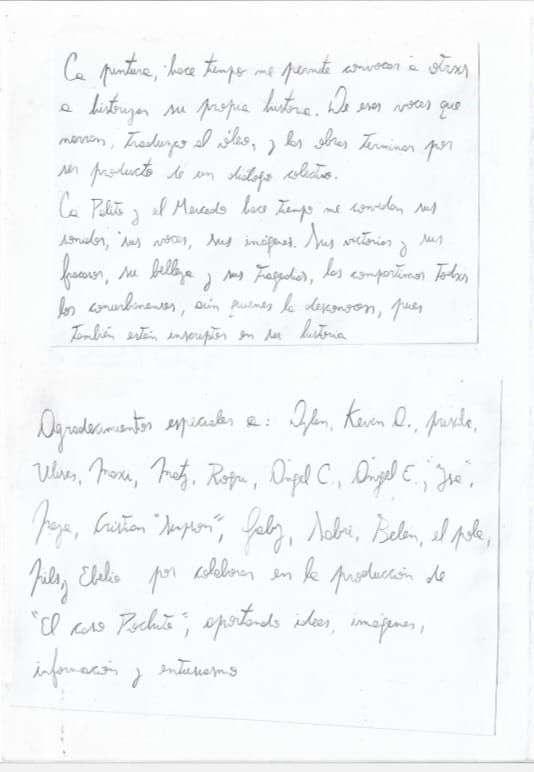 La pintura, hace tiempo me permite convocar a otrxs
a historizar su propia historia. De esas voces que
narran, traduzco al óleo, y las obras terminan por
ser producto de un diálogo colectivo.
La Palito y el Mercado hace tiempo me convidan sus
sonidos, sus voces, sus imágenes. Sus victorias y sus
fracasos, su belleza y sus tragedias, las compartimos todxs
los conurbanenses, aún quienes la desconocen, pues
también están inscriptos en su historia
Agradecimientos especiales a: Dylan, Keven O.,
Ulises, Maxi, Maty, Angel C., Angel E.,
Cristian "Simpson", Gaby, Sabri, Belen, el pola,
y Ebelio por colaborar en la producción de
"El caso Pochito", aportando ideas, imágenes,
información y entusiasmo